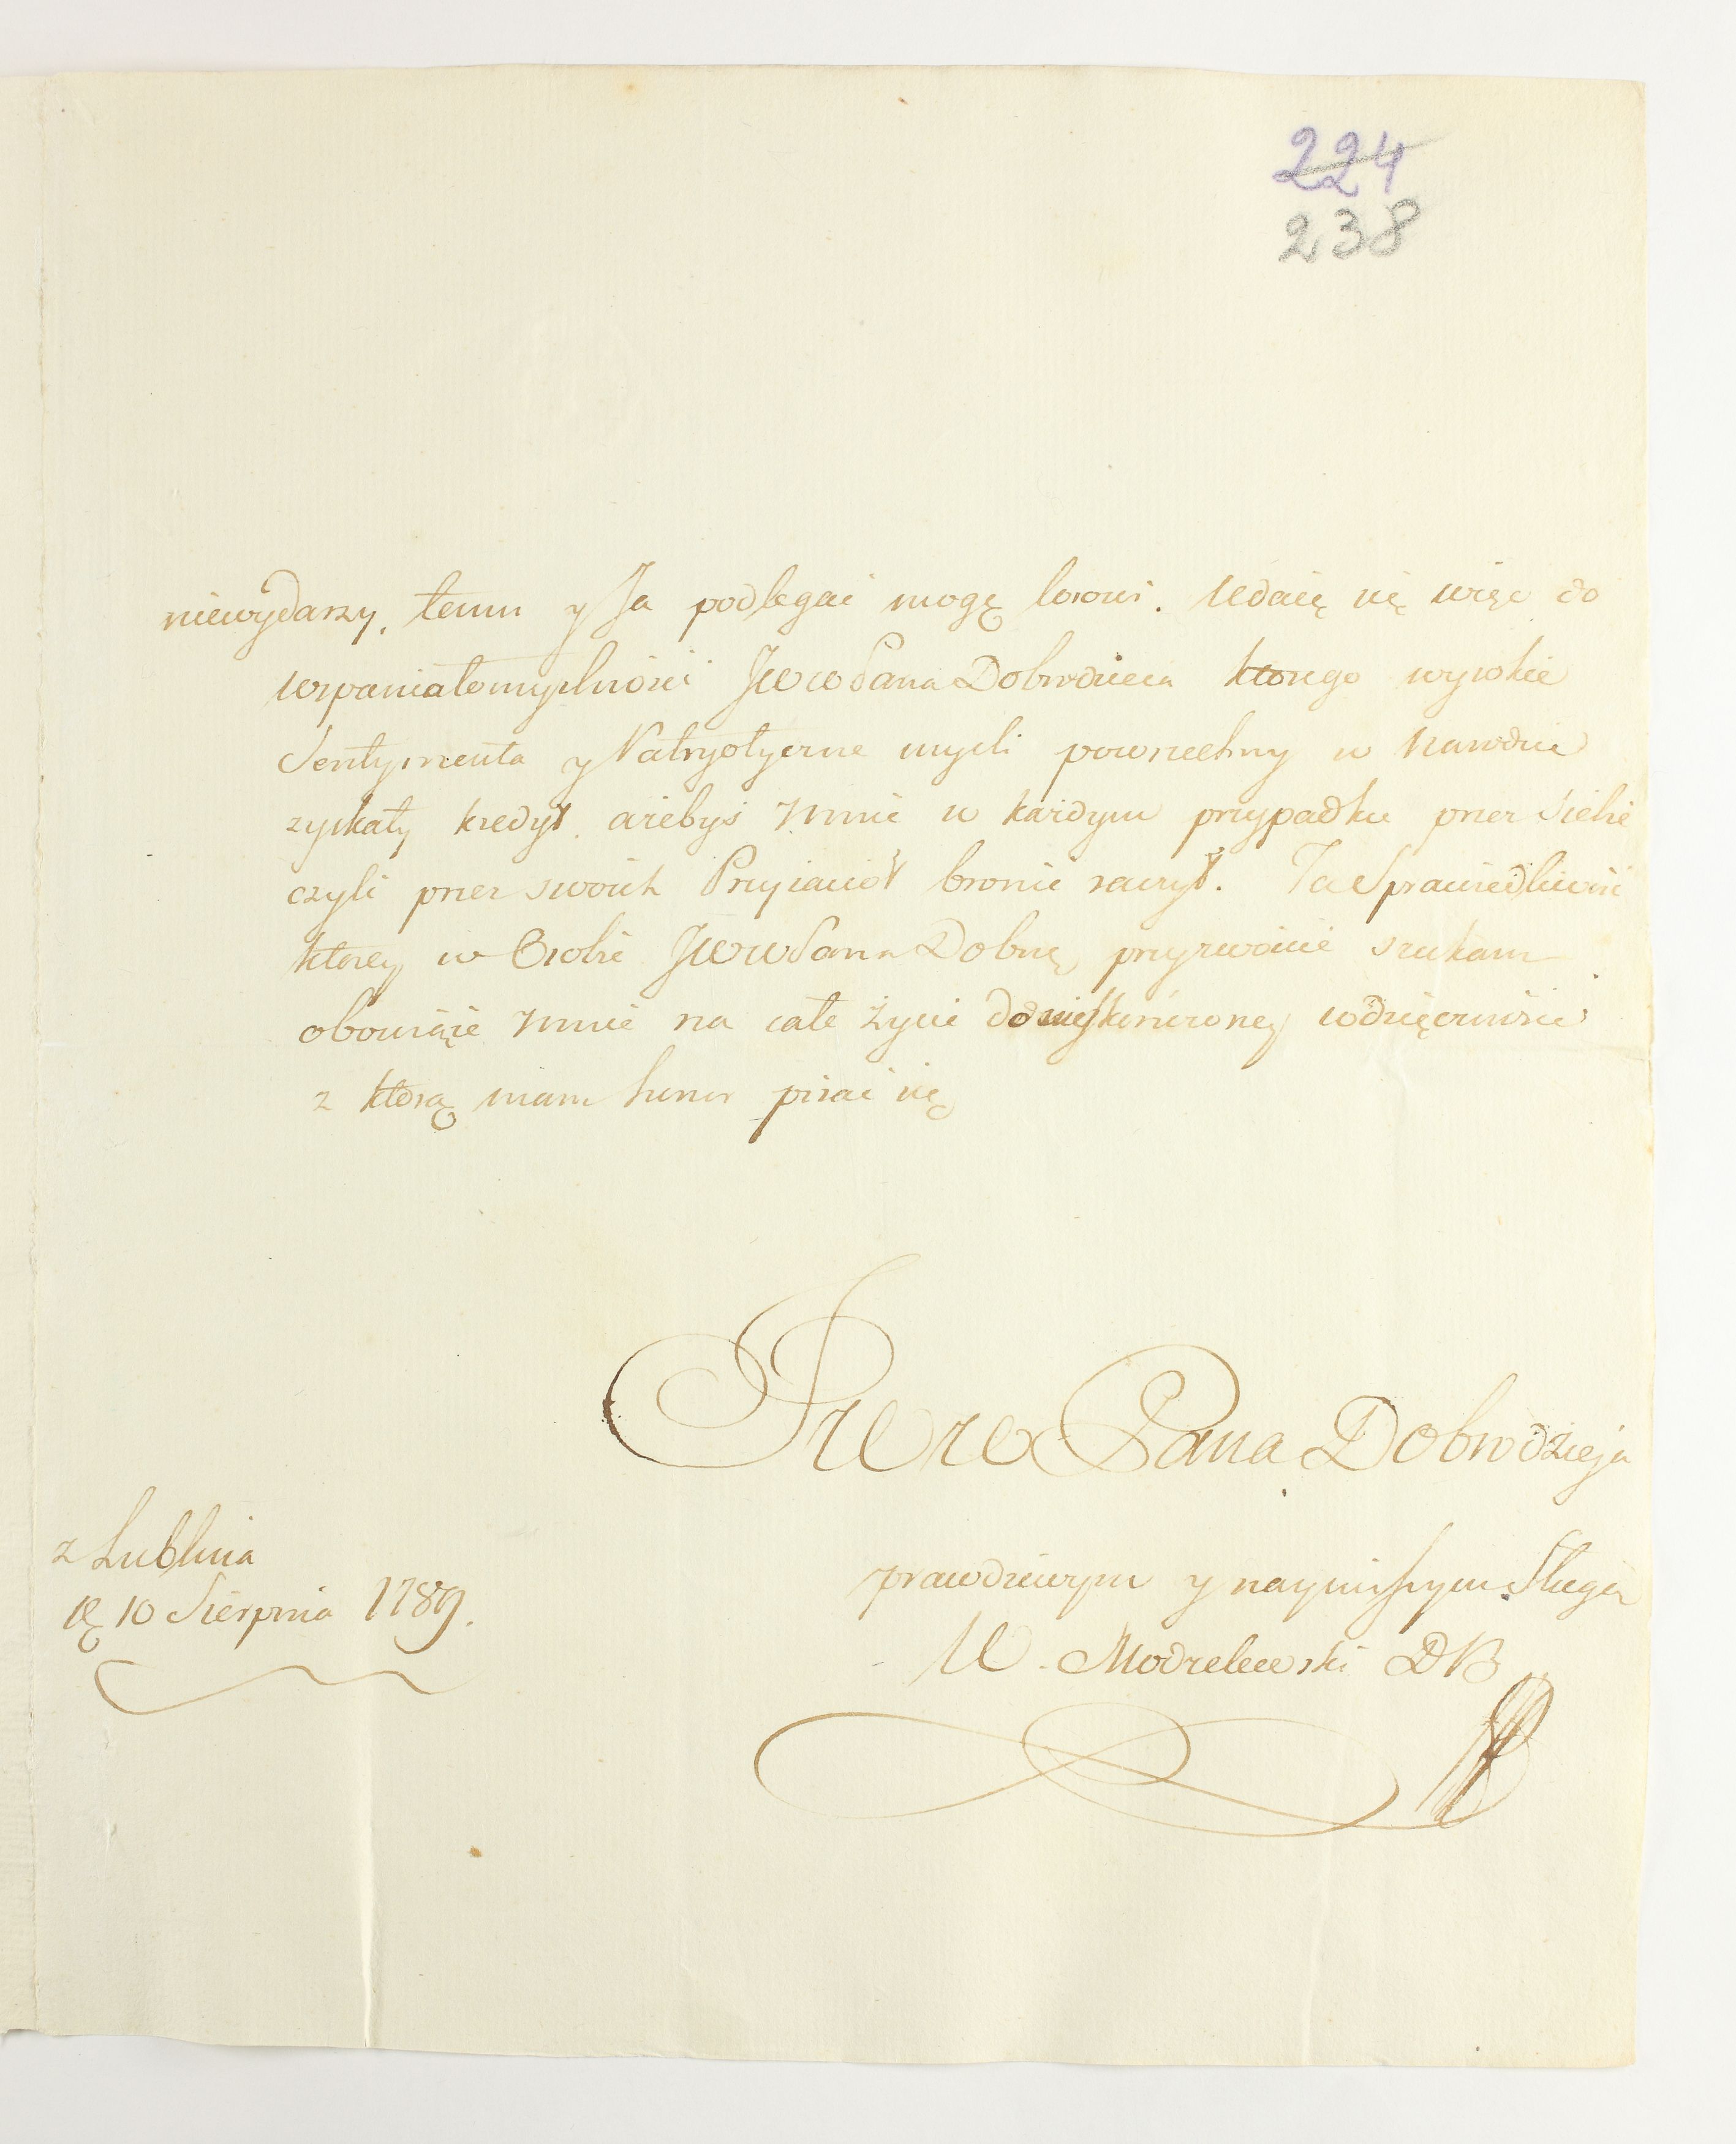 224
238
niewydarzy, temu y Ja podlegać mogę losowi. Udaię się więc do
wspaniałomyslności JWWPana Dobrodzieia ktorego wysokie
Sentymenta y Patryotyczne mysli powszechny w Narodzie
zyskały kredyt, ażebyś mnie w każdym przypadku przez siebie
czyli przez swoich Przyiacioł bronić raczył. Ta Sprawiedliwość
ktorey w Osobie JWWPana Dobrą przyzwoicie szukam
obowiąże mnie na całe życie do nieskończoney wdzięczności
z ktorą mam honor pisać się
JWW Pana Dobrodzieja
z Lublina
10 Sierpnia 1789.
prawdziwym y nayniższym Sługą
Modzelewski DB